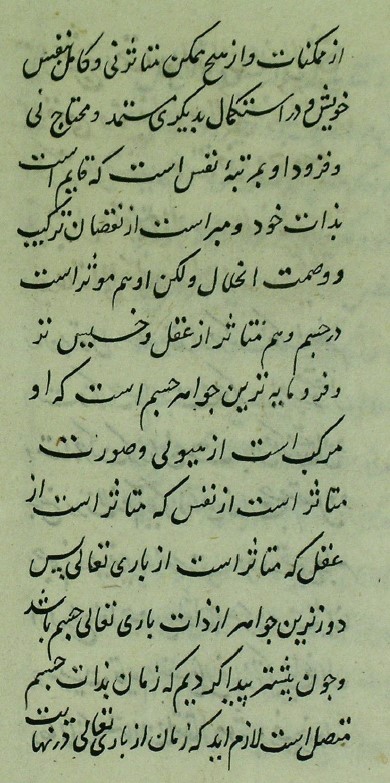 از ممکنات و از هیچ ممکن متاثر نی و کامل بنفس
خویش و در استکمال بدیگری مستمد و محتاج نی
و فرود او بمرتبهٔ نفس است که قایم است
بذات خود و مبراست از نقصان ترکیب
و وصمت انحلال ولکن او هم موثر است
در جسم و هم متاثر از عقل و خسیس تر
و فرومایه ترین جواهر جسم است که او
مرکب است از هیولی و صورت
متاثر است از نفس که متاثر است از
عقل که متاثر است از باری تعالی پس
دورترین جواهر از ذات باری تعالی جسم باشد
و چون بیشتر پیدا کردیم که زمان بذات جسم
متصل است لازم اید که زمان از باری تعالی در نهایت